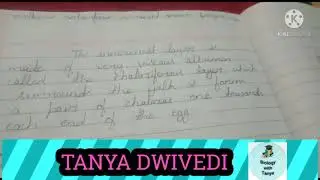 The innermost layer is
made of very viscous albumen
called the chalaziferous layer which
surrounds the yolk & form
a pair of chalazae one towards
each end of the egg.
KINEMASTER
TANYA DWIVEDI
Biology
with
Tanya